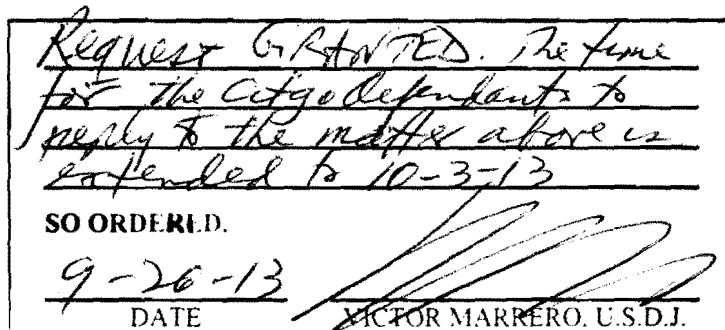 Request GRANTED. The time
for the Citgo Defendants to
reply to the matter above is
extended to 10-3-13
SO ORDERED.
9-26-13
DATE
VICTOR MARRERO, U.S.D.J.